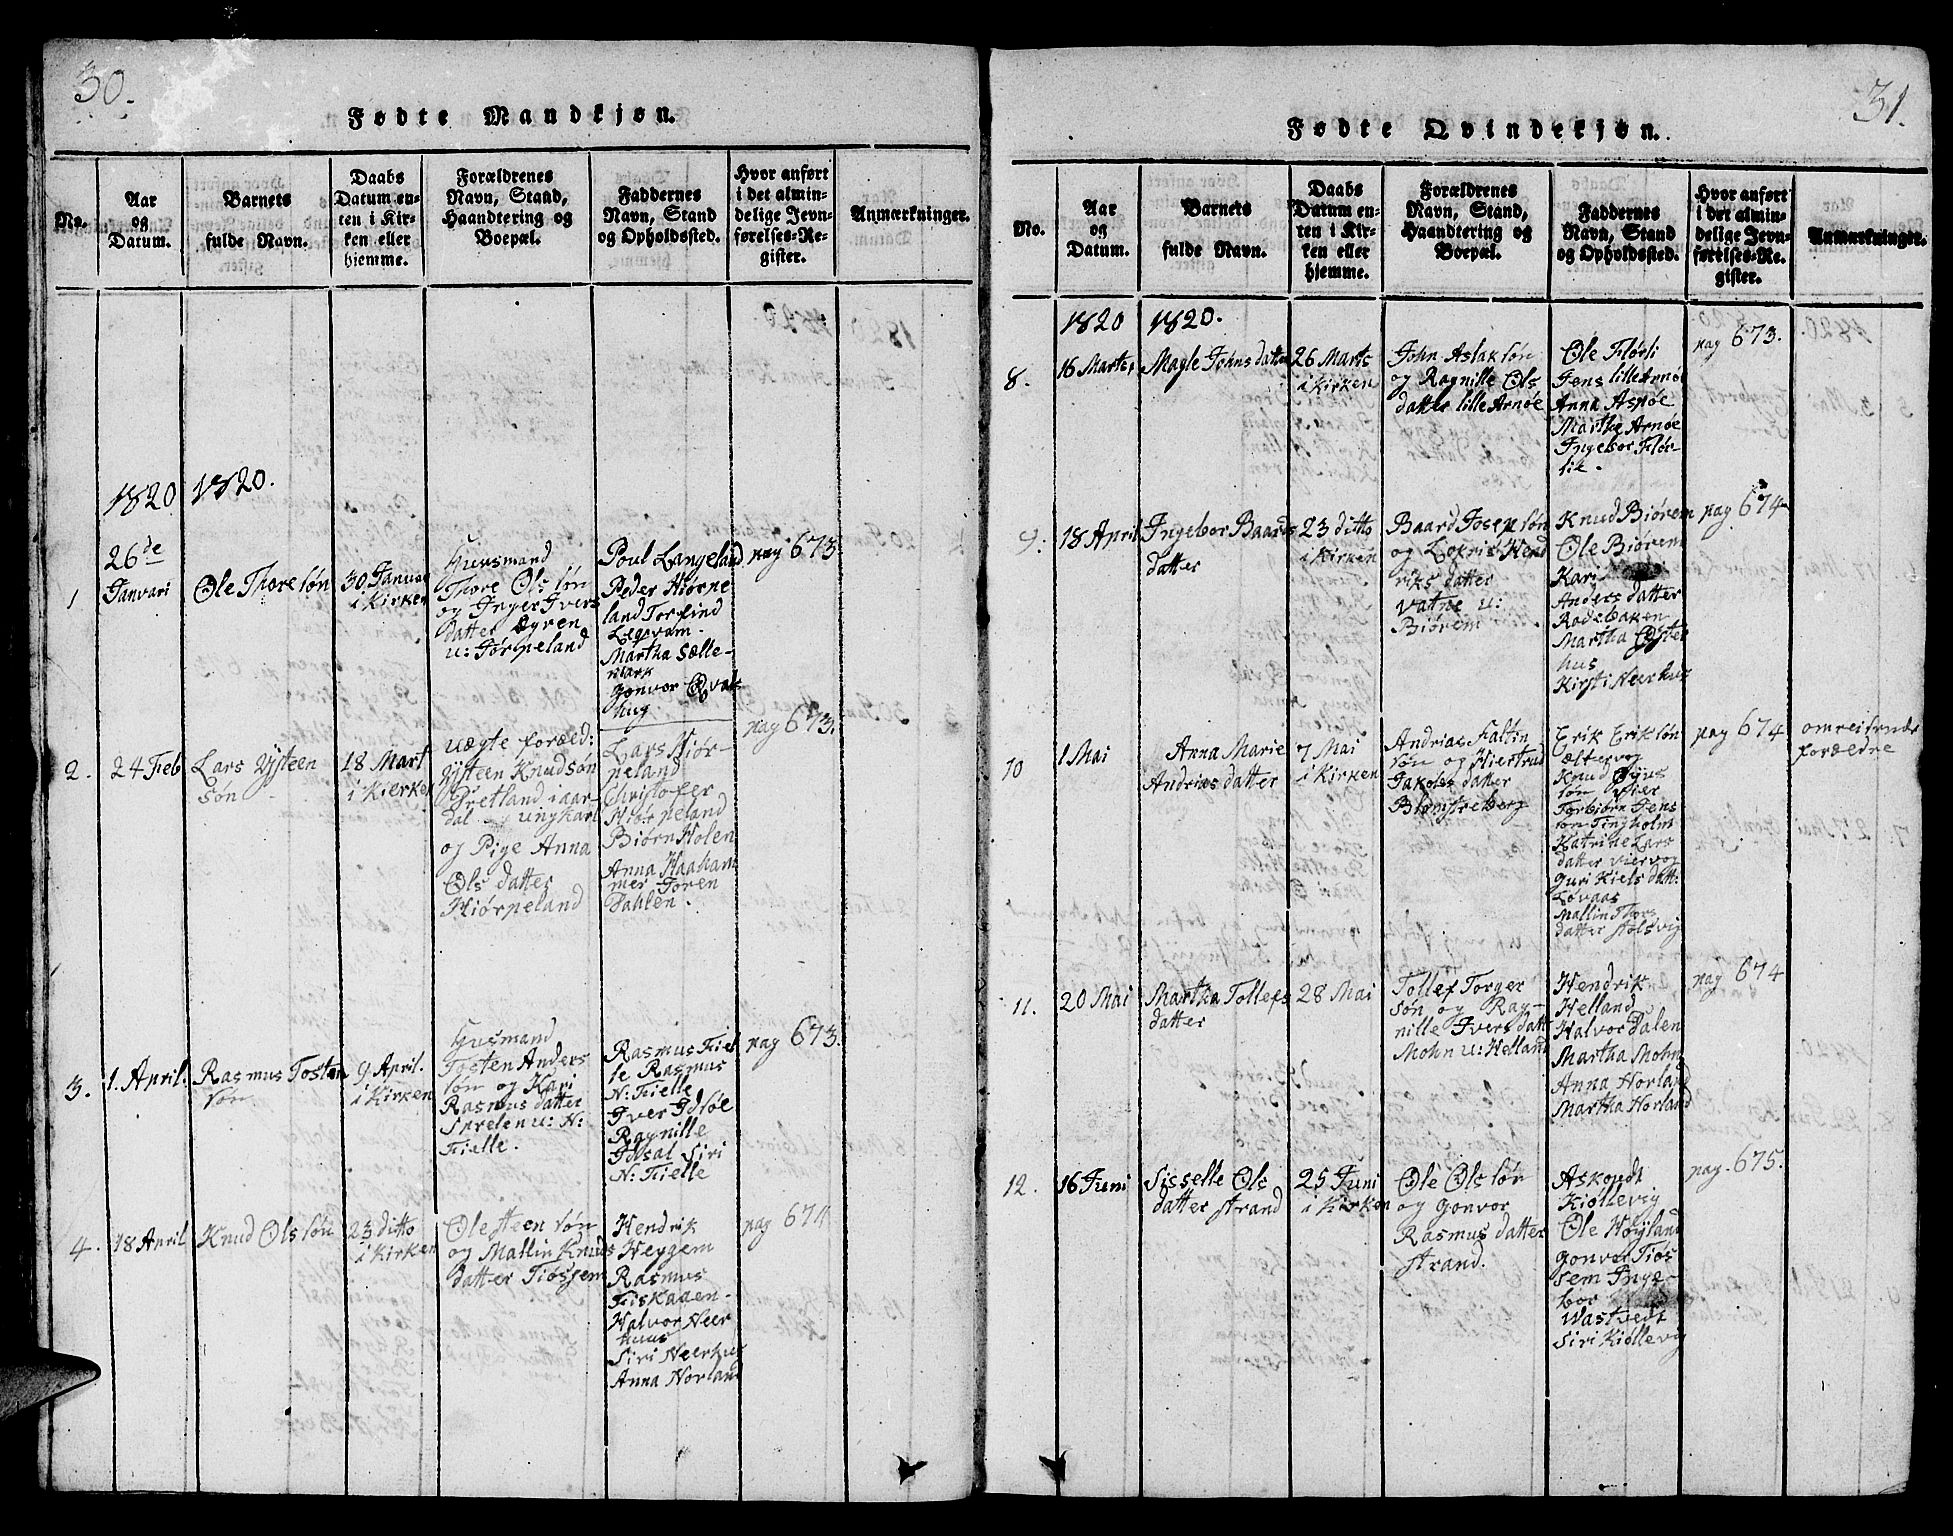 30.
Fødte Mandkjøn.
No.
Aar
og
Datum.
Barnets
fulde Navn.
Daabs
Datum en-
ten i Kir-
ken eller
hjemme.
Forældrenes
Navn, Stand,
Haandtering og
Boepæl.
Faddernes
Navn, Stand
og Opholdssted.
Hvor anført
i det almin-
delige Jevn-
førelses-Re-
gister.
Anmærkninger.
1820
1820.
1
26de
Januari
Ole Thore søn
30 Januar
i Kirken
Huusmand
Thore Ols søn
og Inger Ivers
datter Øyren
u: Jørpeland
Poul Langeland
Peder Hiørpe
land Torfind
Leqvam.
Martha Sælle-
mark
Gonvor Qval
hug
pag 673.
2.
24 Feb
Lars Ysteen
søn
18 Mart
i Kierken
Uægte foræld:
Gysteen Knudsøn
Gretland i aar-
dal - ungkarl
og Pige Anna
Ols datter
Hiørpeland
Lars Hiør-
peland
Christofer
Hiørpeland
Biørn Holen
Anna Haaham
mer Joren
Dahlen.
pag 673.
3.
1. April.
Rasmus Tosten
søn
9 April.
i Kirken
Husmand
Tosten Anders
søn og Kari
Rasmus datter
Sprelen u: N:
Fielle.
Rasmus Fiel
le Rasmus
N: Fielle
Iver Idsøe
Ragnille
Idsal Siri
N: Fielle
pag 673.
4.
18 April
Knud Ols søn
23 ditto
i Kirken
Ole Steen søn
og Mallin Knuds
datter Tiøssem
Hendrik
Heggem
Rasmus
Fiskaaen
Halvor Neer
huus
Siri Neerhug
Anna Norland
pag 674
31.
Fødte Qvindekjøn.
No.
Aar
og
Datum.
Barnets
fulde Navn.
Daabs
Datum en-
ten i Kir-
ken eller
hjemme.
Forældrenes
Navn, Stand,
Haandtering og
Boepæl.
Faddernes
Navn, Stand
og Opholdssted.
Hvor anført
i det almin-
delige Jevn-
førelses-Re-
gister.
Anmærkninger.
1820
1820.
8.
16 Marts
Magle Johns datter
26 Marts
i Kirken
John Aslak søn
og Ragnille Ols
datter lille Arnøe
Ole Flørli
Jens lille Arnøe
Anna Aspøe
Marthe Arnøe
Ingebor Flør
lik.
pag 673.
9.
18 April
Ingebor Baards
datter
23 ditto
i Kirken
Baard Josep søn
og Lokris Hend
riks datter
Vatne u:
Biørem
Knud Biørem
Ole Biørem
Kari
Anders datter
Rødebaken
Martha Øyster
hus
Kirsti Neerhus
pag 674
10
1 Mai
Anna Marie
Andrias datter
7 Mai
i Kirken
Andrias Faltin
søn og Hiertrud
Jakobs datter
Blomsreberg
Erik Erik søn
Æltervog
Knud Øyus
søn Øier
Torbiørn Jens
søn Tingholm
Katrine Lars
datter viervog
Guri Kiels datt:
Løvaas
Mallin Thors
datter Stølsvig
pag 674
omreisende
forældre
11.
20 Mai
Martha Tollefs
datter
28 Mai
Tollef Torger
søn og Rag-
nille Ivers datt
Mohn u: Helland
Hendrik
Helland
Halvor Dalen
Martha Mohn
Anna Norland
Martha Norland
pag 674
12.
16 Juni
Sisselle Ols
datter Strand
25 Juni
i Kirken
Ole Ols søn
og Gonvor
Rasmus datter
Strand.
Askoudt
Kiøllevig
Ole Høyland
Gonver Tiøs
sem Inge-
bor
Wastvedt
Siri Kiøllevig
pag. 675.